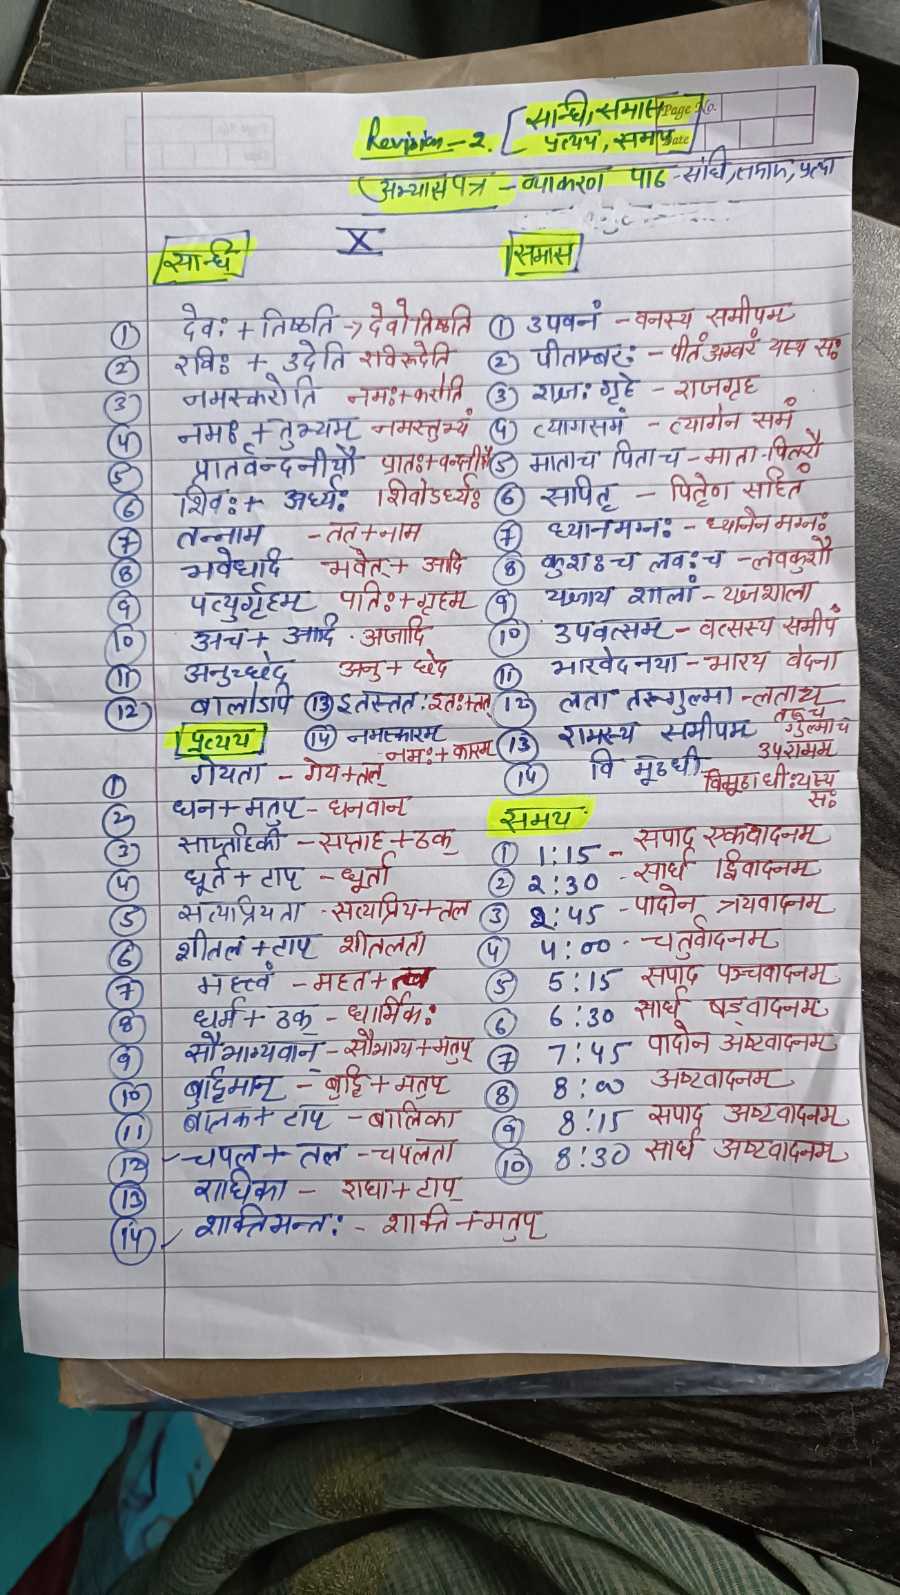 Revision - 2. [सन्धि, समास
प्रत्यय, समय]
Page No.
Date
अभ्यासपत्र - व्याकरण पाठ - संधि, समास, प्रत्यय
X
सन्धि
① देवः + तिष्ठति → देवोतिष्ठति
② रविः + उदेति रविरूदेति
③ नमस्करोति नमः+करोति
④ नमः + तुभ्यम् नमस्तुभ्यं
⑤ प्रातर्वन्दनीयौ प्रातः+वन्दनीयौ
⑥ शिवः + अर्ध्यः शिवोऽर्ध्यः
⑦ तन्नाम - तत+नाम
⑧ भवेधादि भवेत् + आदि
⑨ पत्युर्गृहम पतिः+गृहम
⑩ अच + आदि . अजादि
⑪ अनुच्छेद अनु + छेद
⑫ बालोऽपि ⑬ इतस्ततः इतः+ततः
⑭ नमस्कारम
नमः + कारम
प्रत्यय
① गेयता - गेय+तल्
② धन+मतुप् - धनवान्
③ साप्ताहिकी - सप्ताह + ठक्
④ धूर्त + टाप् - धूर्ता
⑤ सत्यप्रियता - सत्यप्रिय+तल
⑥ शीतल + टाप् शीतलता
⑦ महत्वं - महत+त्व
⑧ धर्म + ठक् - धार्मिकः
⑨ सौभाग्यवान् - सौभाग्य+मतुप्
⑩ बुद्दिमान् - बुद्दि + मतुप्
11 बालक + टाप् - बालिका
12 चपल + तल - चपलता
⑬ राधिका - राधा + टाप्
⑭ शक्तिमन्तः - शक्ति + मतुप्
समास
① उपवनं - वनस्य समीपम
② पीताम्बरः - पीतं अम्बरं यस्य सः
③ राज्ञः गृहे - राजगृह
④ त्यागसमं - त्यागेन समं
⑤ माताच पिताच - माता-पितरौ
⑥ सपितृ - पितृेण सहितं
⑦ ध्यानमग्नः - ध्यानेन मग्नः
⑧ कुशःच लवःच - लवकुशौ
⑨ यज्ञाय शालां - यज्ञशाला
⑩ उपवत्सम - वत्सस्य समीपं
⑪ भारवेदनया - भारय वेदना
⑫ लता तरूगुल्मा - लताच
तरूच
गुल्माच
⑬ रामस्य समीपम उपरामम
⑭ विमूढधी
विमूढाधीः यस्य
सः
समय
① 1:15 - सपाद एकवादनम्
② 2:30 - सार्ध द्विवादनम्
③ 2:45 - पादोन त्रयवादनम्
④ 4:00 - चतुर्वादनम्
⑤ 5:15 सपाद पञ्चवादनम्
⑥ 6:30 सार्ध षड्वादनम्
⑦ 7:45 पादोन अष्टवादनम्
⑧ 8:00 अष्टवादनम्
⑨ 8:15 सपाद अष्टवादनम्
⑩ 8:30 सार्ध अष्टवादनम्